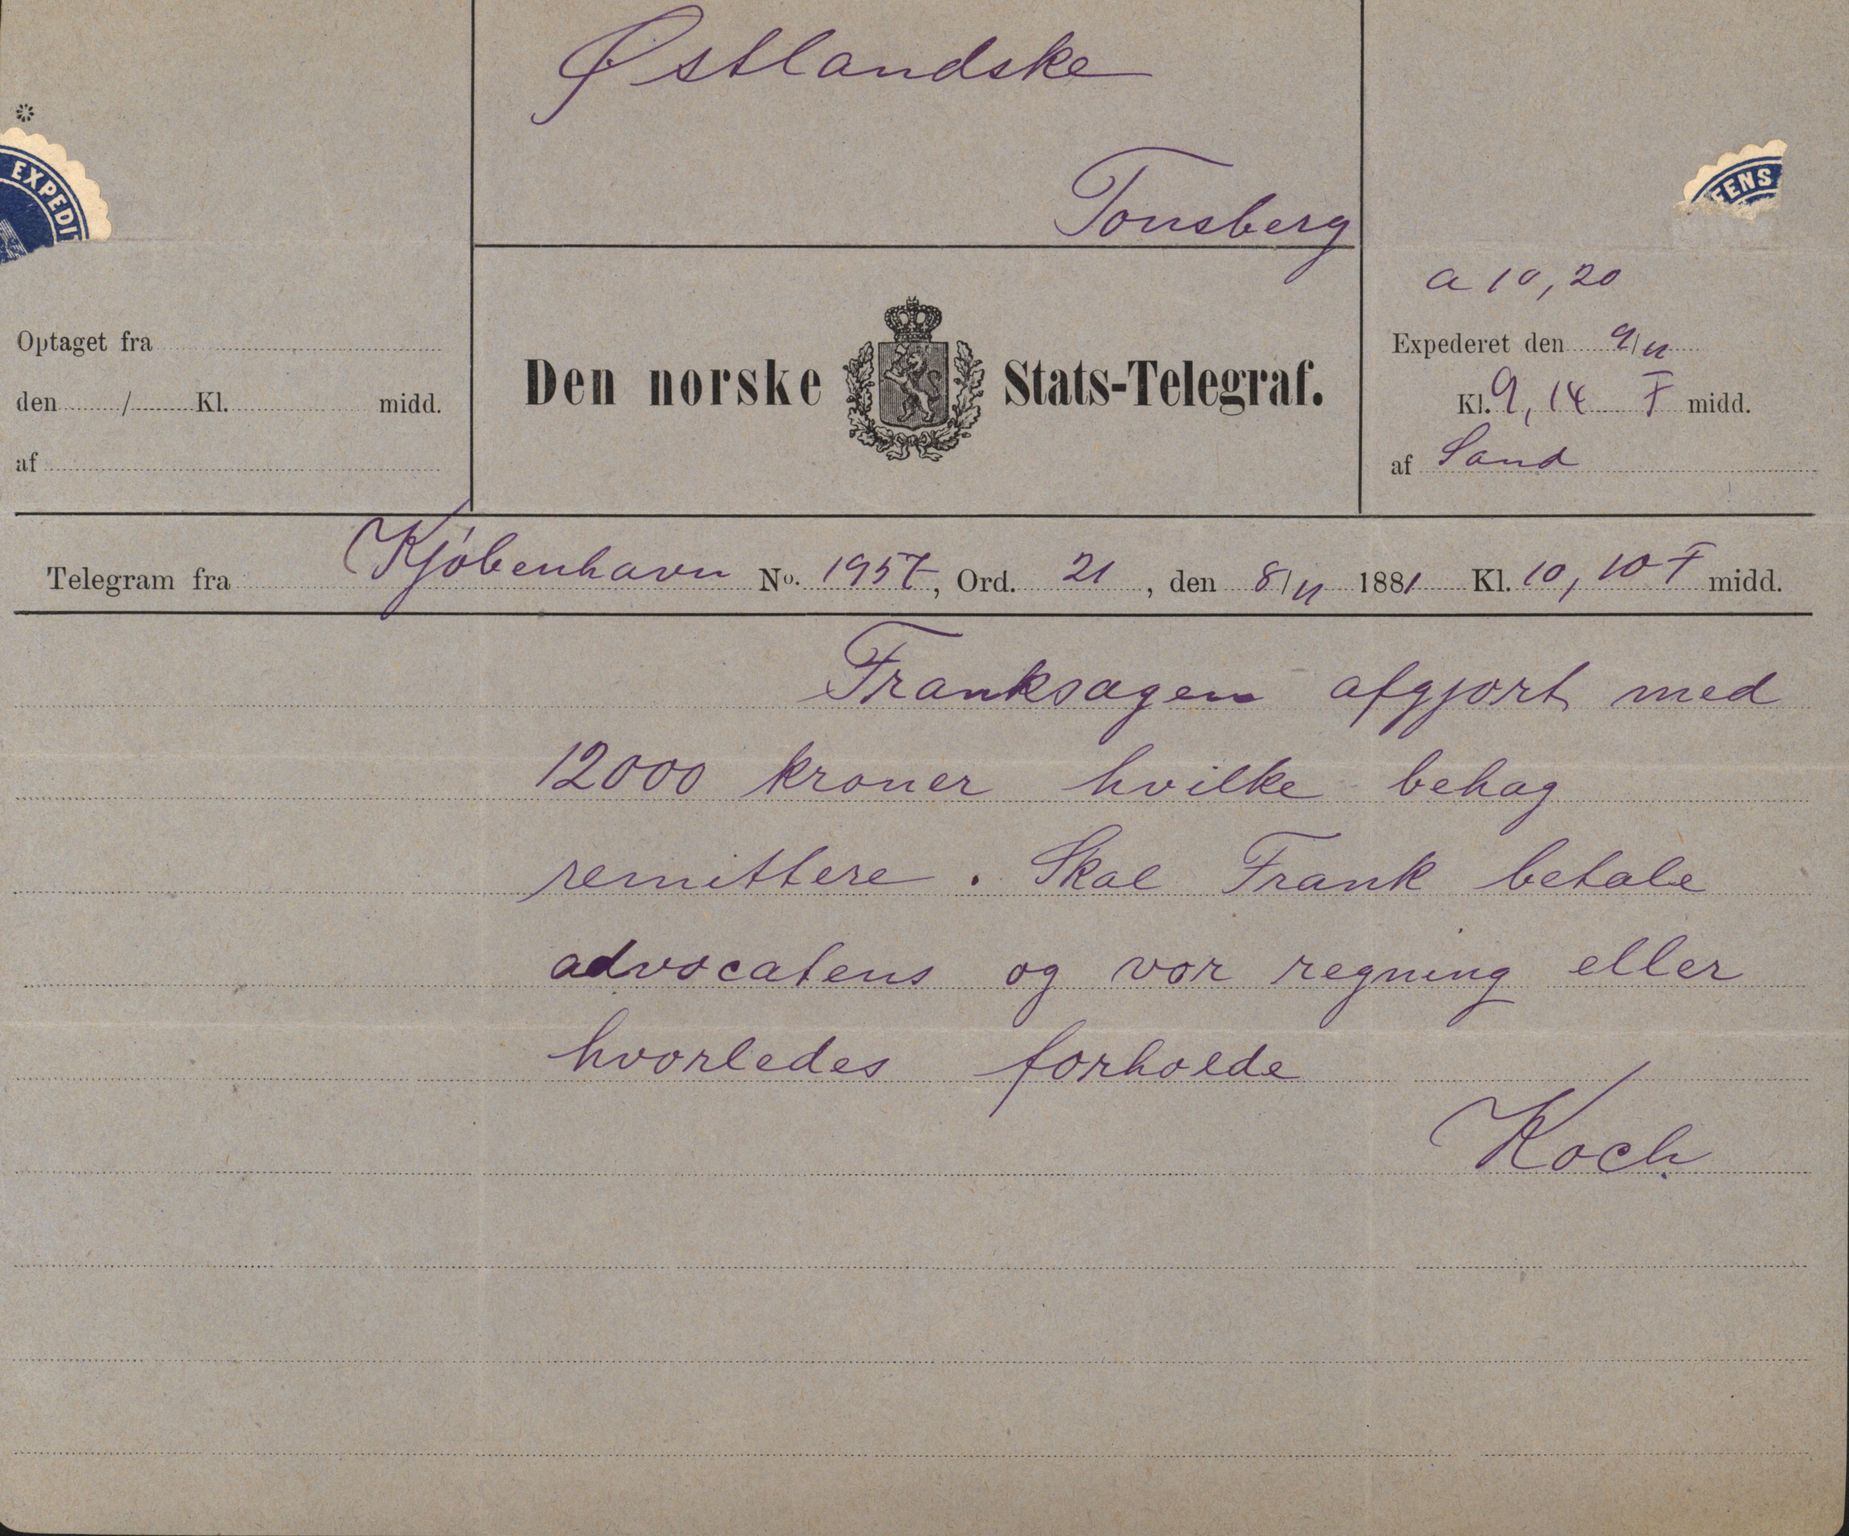 Østlandske
Tonsberg
EXPEDIT
EENS
a 10,20
Optaget fra
den / Kl. midd.
af
Den norske Stats-Telegraf.
Expederet den 9/11
Kl. 9,14 F midd.
af Sand
Telegram fra Kjøbenhavn No. 1957, Ord. 21, den 8/11 1881 Kl. 10,10 F midd.
Franksagen afgjort med
12000 kroner hvilke behag
remittere. Skal Frank betale
advocatens og vor regning eller
hvorledes forholde
Koch